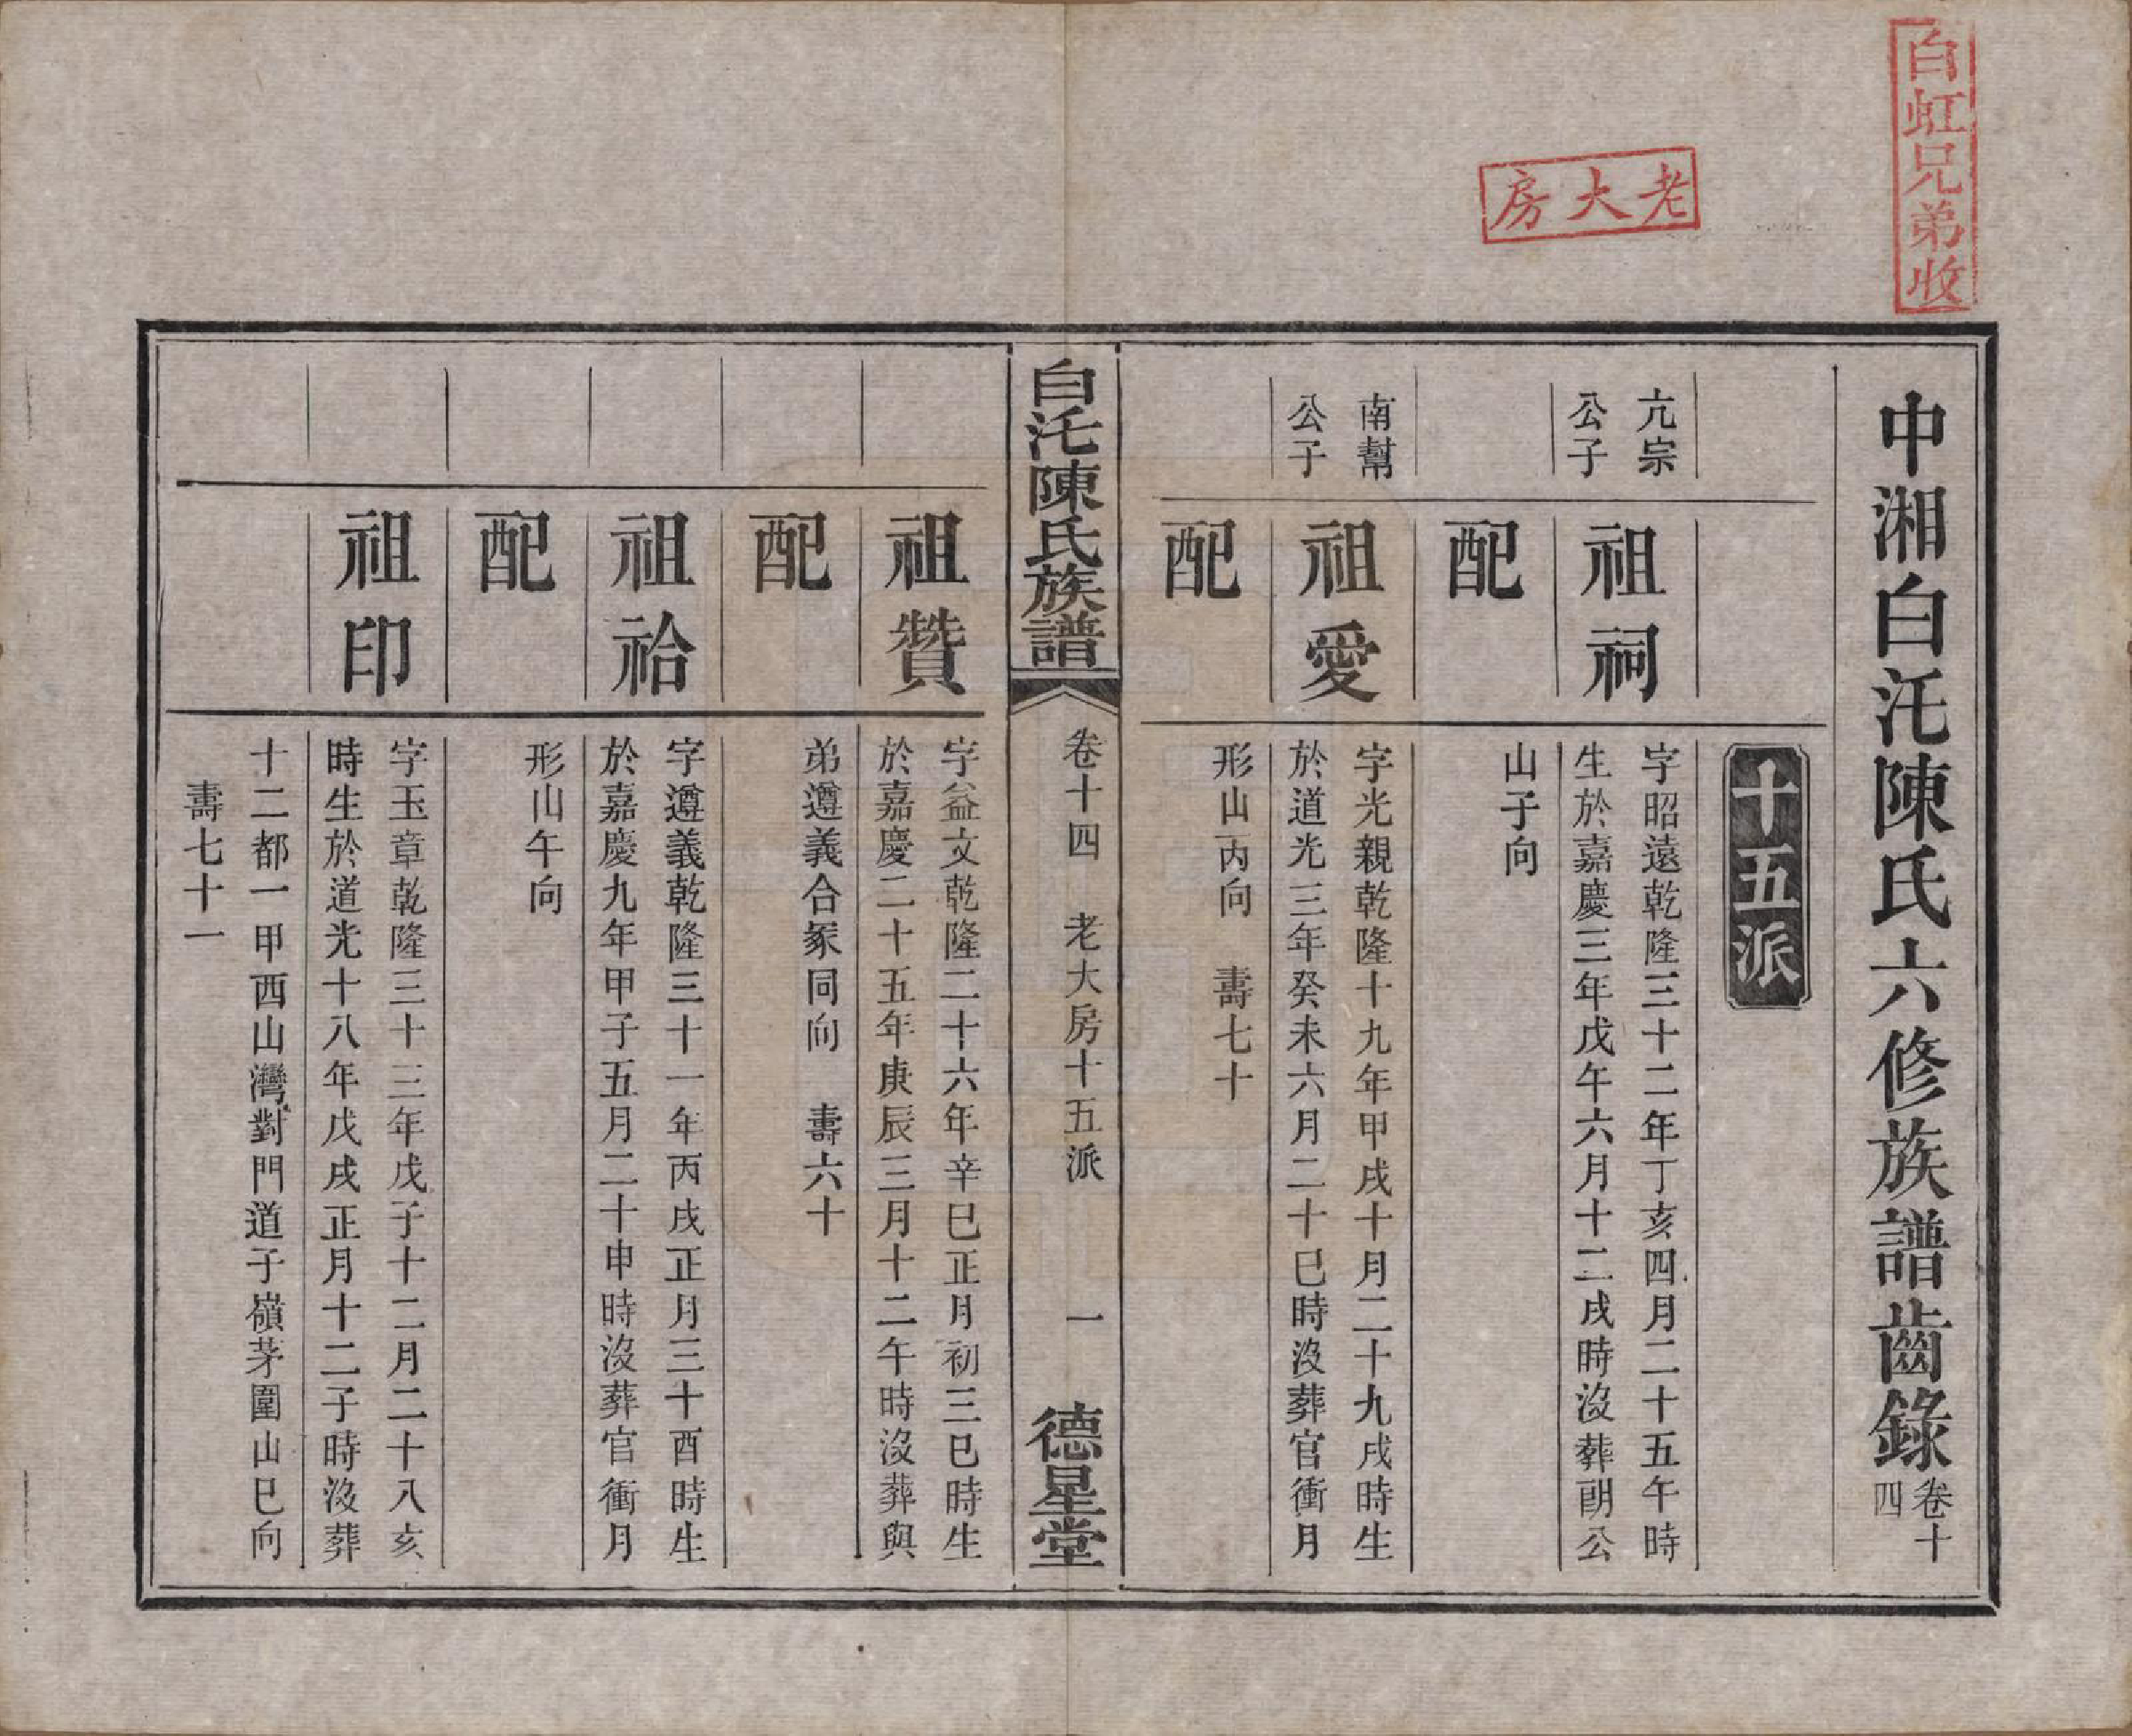 白虹兄弟收
老大房
中湘白汑陳氏六修族譜齒錄卷十四
十五派
亢宗公子
祖祠
字昭遠乾隆三十二年丁亥四月二十五午時
生於嘉慶三年戊午六月十二戌時沒葬萠公
配
山子向
南幫公子
祖愛
字光親乾隆十九年甲戌十月二十九戌時生
於道光三年癸未六月二十巳時沒葬官衝月
配
形山丙向 壽七十
白汑陳氏族譜
卷十四 老大房十五派 一
德星堂
祖贊
字益文乾隆二十六年辛巳正月初三巳時生
於嘉慶二十五年庚辰三月十二午時沒葬與
配
弟遵義合冢同向 壽六十
祖祫
字遵義乾隆三十一年丙戌正月三十酉時生
於嘉慶九年甲子五月二十申時沒葬官衝月
配
形山午向
祖印
字玉章乾隆三十三年戊子十二月二十八亥
時生於道光十八年戊戌正月十二子時沒葬
十二都一甲西山灣對門道子嶺茅圍山巳向
壽七十一